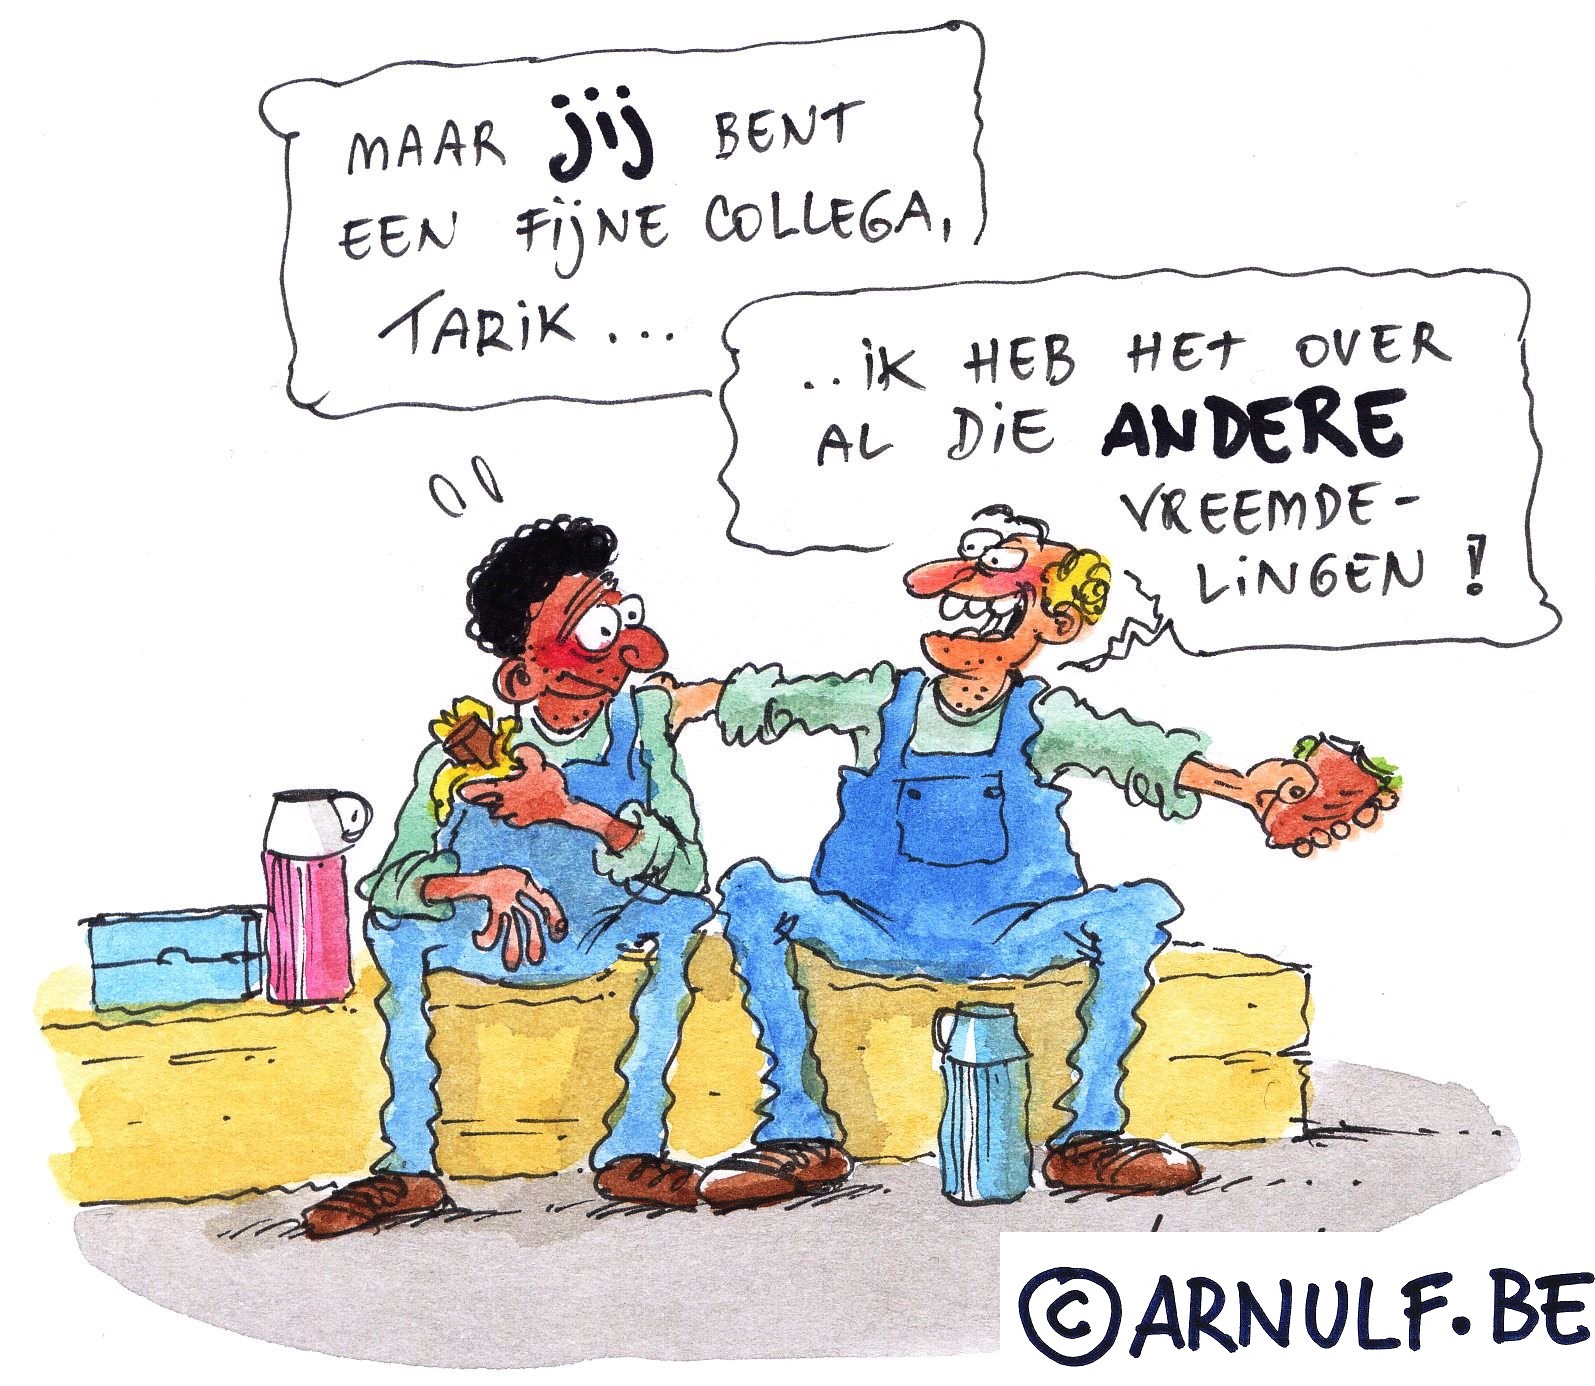 MAAR jij BENT
EEN FijNE COLLEGA,
TARiK...
..iK HEB HET OVER
AL DiE ANDERE
VREEMDE-
LiNGEN!
©ARNULF.BE